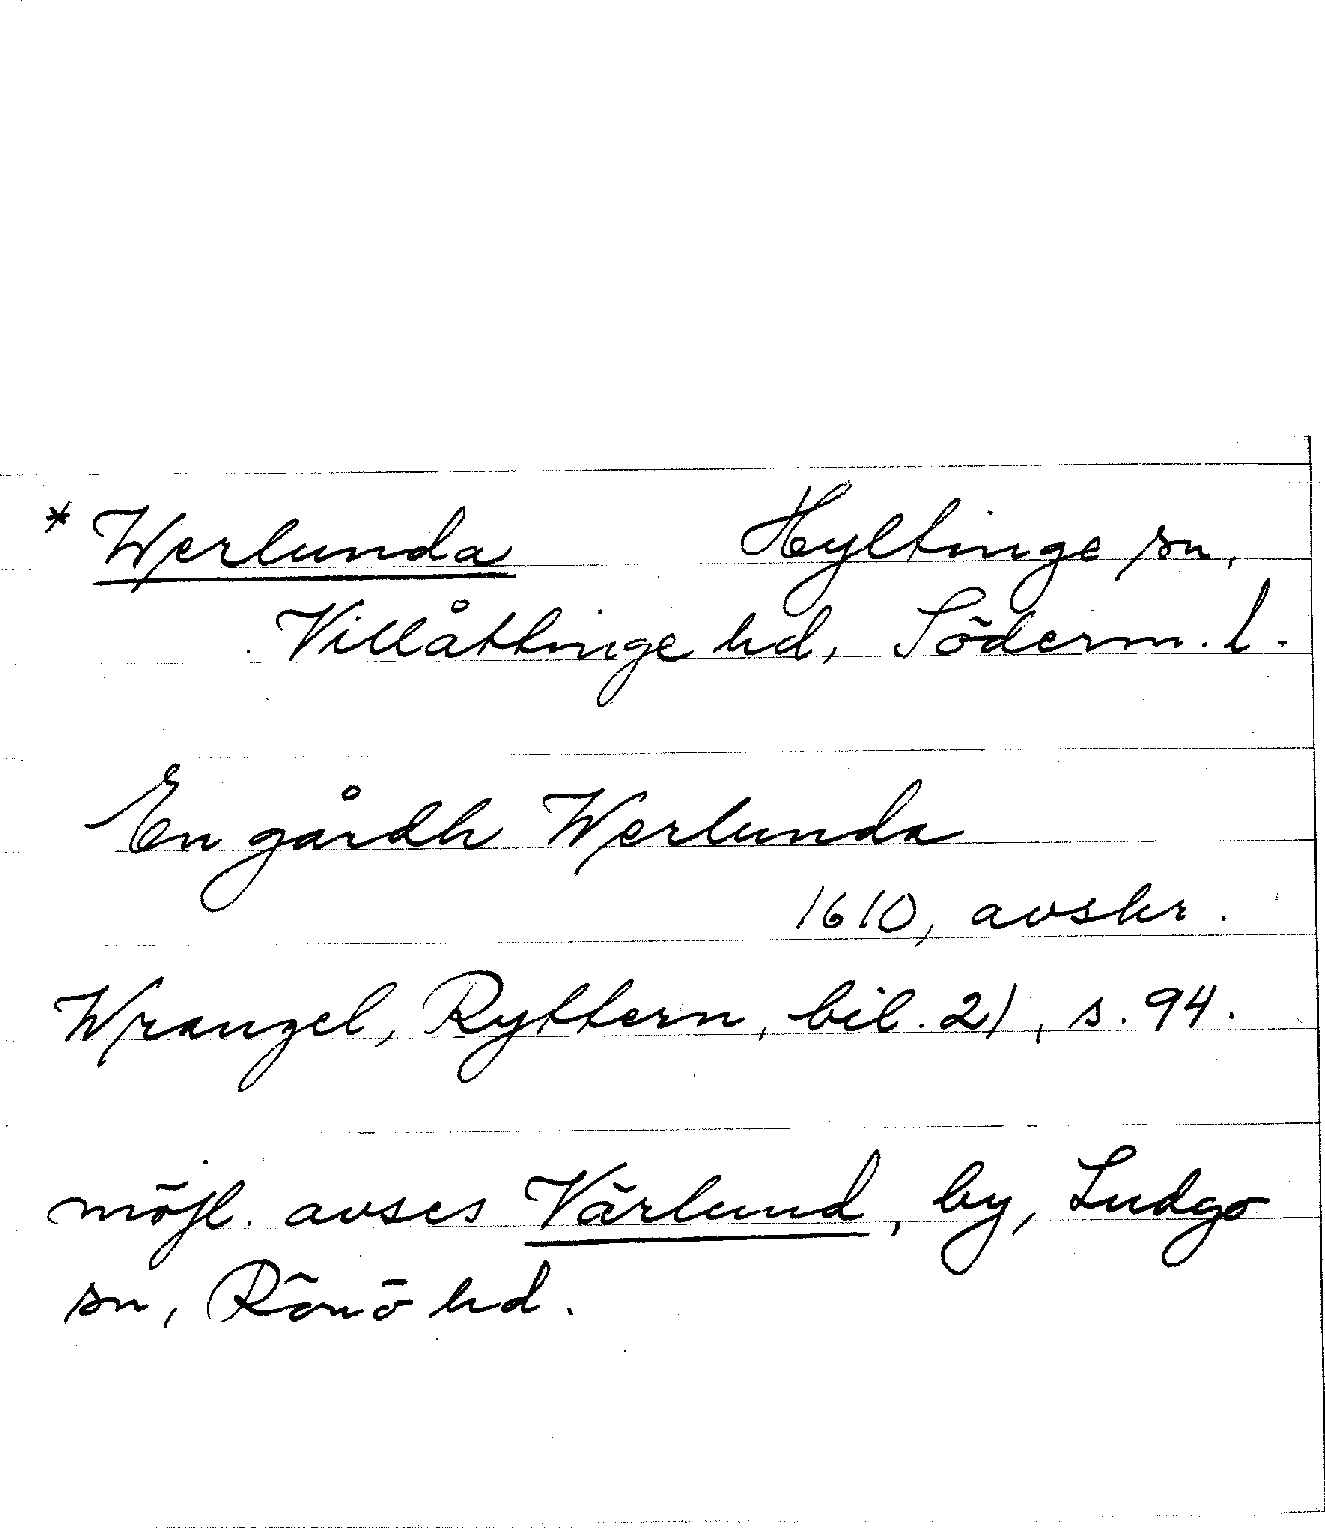 * Werlunda Hyltinge sn,
Villåttinge hd, Söderm. l.
En gårdh Werlunda
1610, avskr.
Wrangel, Ryttern, bil. 21, s. 94.
möjl. avses Värlund, by, Ludgo
sn, Rönö hd.